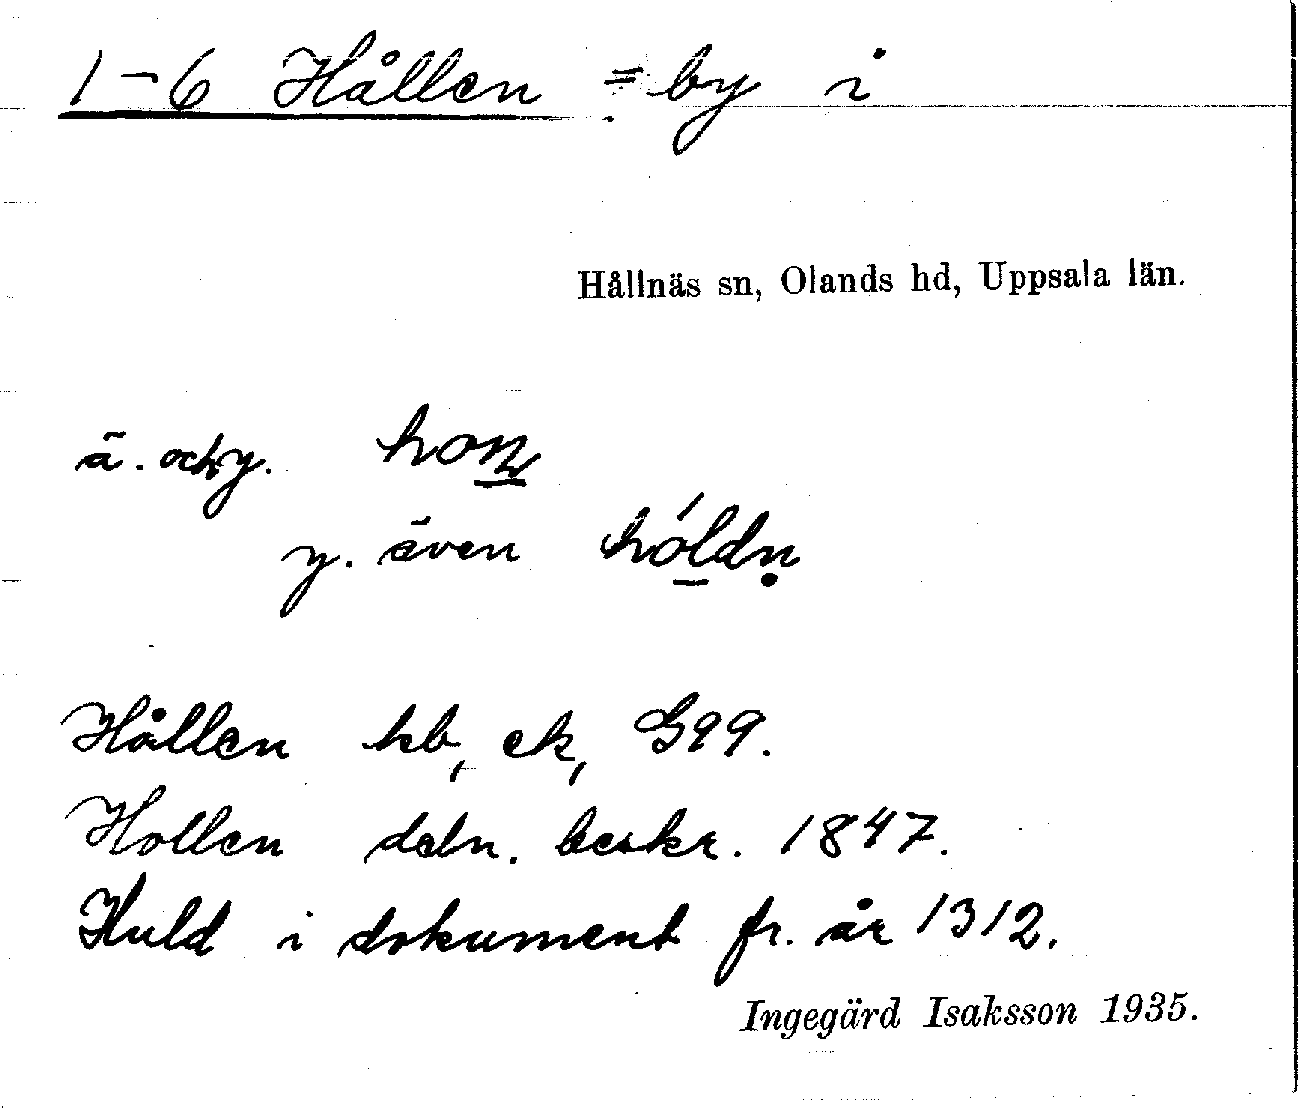 1-6 Hållen = by i
Hållnäs sn, Olands hd, Uppsala län.
ä. och y.
y. även hóldn̥
Hållen kb, ek, G99.
Hollen deln. beskr. 1847.
Huld i dokument fr. år 1312.
Ingegärd Isaksson 1935.